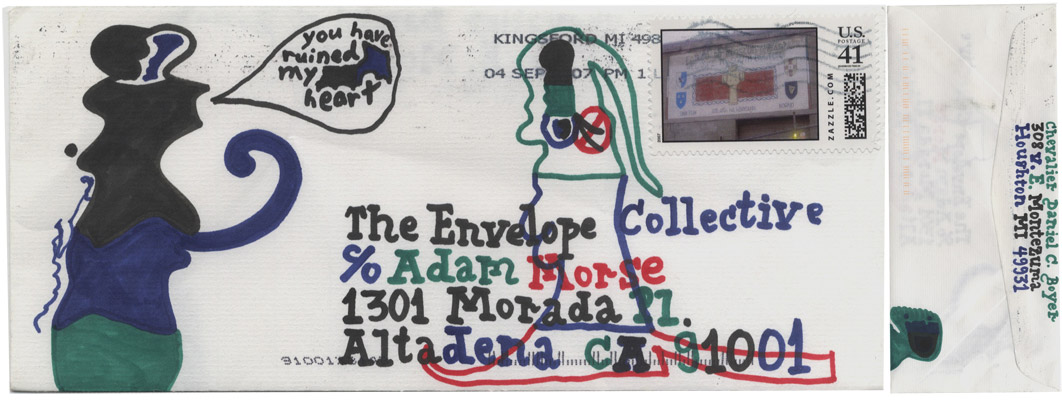 you have
ruined
my
heart
KINGSFORD MI 498
04 SEP 07 PM 1 L
U.S.
POSTAGE
41
ZAZZLE.COM
The Envelope Collective
c/o Adam Morse
1301 Morada Pl.
Altadena CA 91001
Chevalier Daniel C. Boyer
308 W. E. Montezuma
Houghton MI 49931